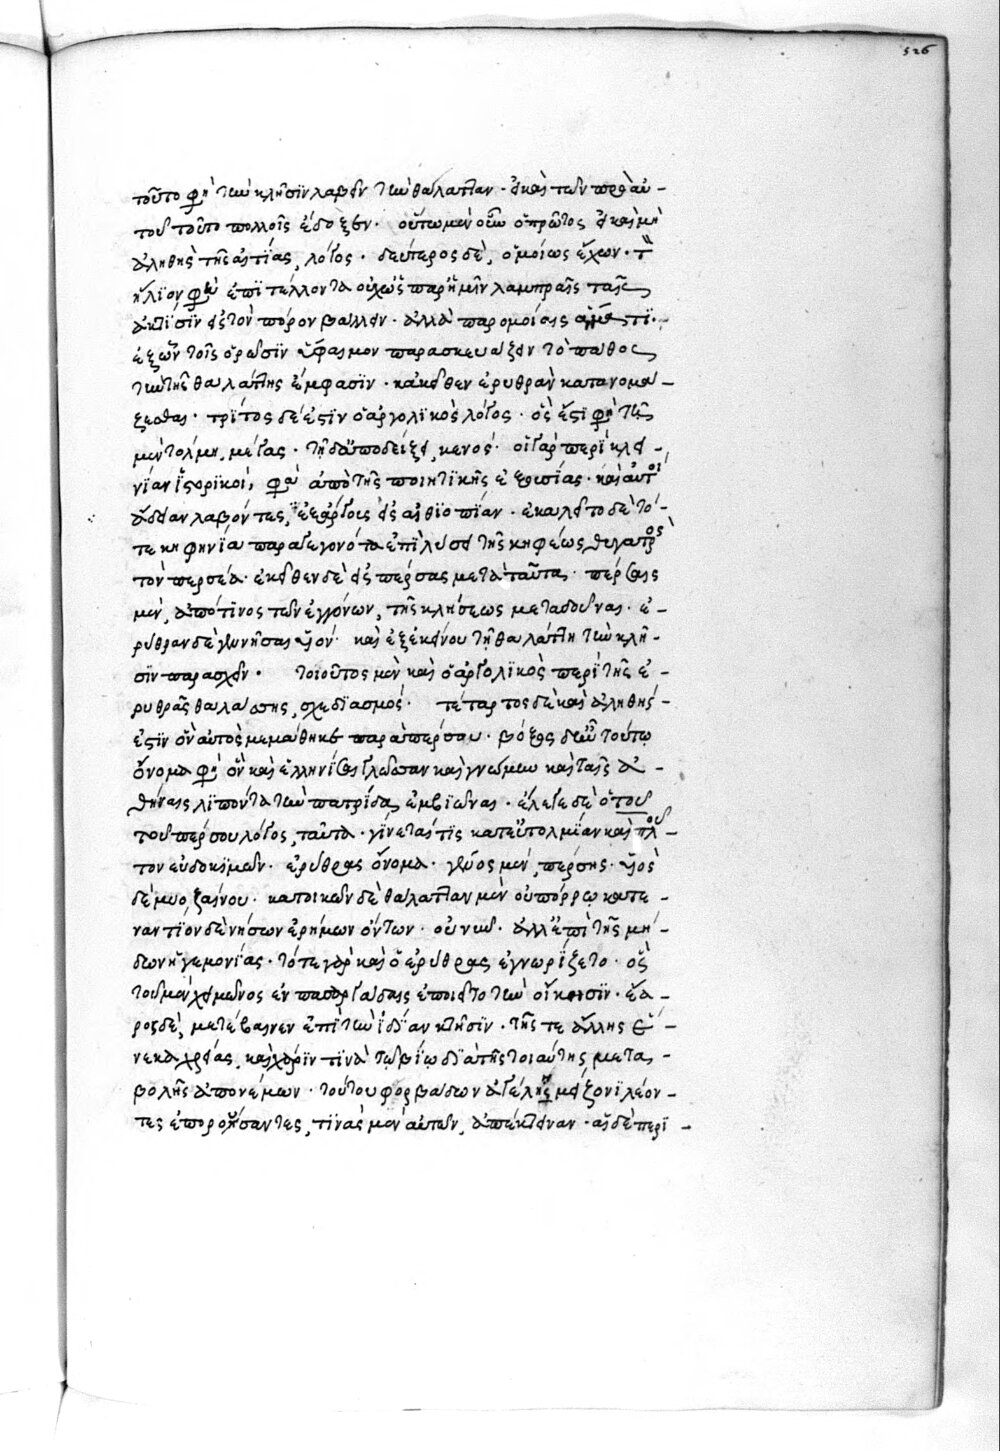 526
τοῦτό φησὶ τὴν κλῆσιν λαβεῖν τὴν θάλατταν. ἐκ τῶν πρὸ αὐ-
τοῦ τοῦτο πολλοῖς ἔδοξεν. οὕτω μὲν οὖν ὁ πρῶτος καὶ μὴ
ἀληθὴς τῆς αἰτίας, λόγος. δεύτερος δὲ, ὁμοίως ἔχων. τὸν
ἥλιόν φησιν ἐπιτέλλοντα οὐχ ὡς παρ' ἡμῖν λαμπραῖς ταῖς
ἀκτῖσιν εἰς τὸν πόρον βάλλειν. ἀλλὰ παρομοίαις
ἐξ ὧν τοῖς ὁρῶσιν ὕφαιμον παρασκευάζειν τὸ πάθος
τὴν τῆς θαλάττης ἔμφασιν. κἀκεῖθεν ἐρυθρὰν κατονομά-
ζεσθαι. τρίτος δέ ἐστιν ὁ ἀργολικὸς λόγος. ὅς ἐστι φησὶ τῇ
μὲν τόλμῃ, μέγας. τῇ δ' ἀποδείξει, κενός. οἱ γὰρ περὶ κλει-
νίαν ἱστορικοί, φησὶν ἀπὸ τῆς ποιητικῆς ἐξουσίας. καὶ αὐτοὶ
ἄδειαν λαβόντες, ἐξ ἄργους εἰς αἰθιοπίαν. ἐκαλεῖτο δὲ τό-
τε κηφηνία παραγεγονότα ἐπὶ λύσει τῆς κηφέως θυγατρὸς
τὸν περσέα. ἐκεῖθεν δὲ εἰς πέρσας μετὰ ταῦτα. πέρσαις
μὲν, ἀπό τινος τῶν ἐγγόνων, τῆς κλήσεως μεταδοῦναι. ἐ-
ρύθραν δὲ γεννῆσαι υἱόν. καὶ ἐξ ἐκείνου τῇ θαλάττῃ τὴν κλῆ-
σιν παρασχεῖν. τοιοῦτος μὲν καὶ ὁ ἀργολικὸς περὶ τῆς ἐ-
ρυθρᾶς θαλάσσης, σχεδιασμός. τέταρτος δὲ καὶ ἀληθής
ἐστιν ὃν αὐτὸς μεμάθηκε παρὰ πέρσου. βόξος δ' ἦν τούτῳ
ὄνομα φησὶ ὃν καὶ ἑλληνίσαι γλῶσσαν καὶ γνώμην καὶ ταῖς ἀ-
θήναις λιπόντα τὴν πατρίδα, ἐμβιῶναι. ἔλεγε δὲ ὁ τοῦ
τοῦ πέρσου λόγος, ταῦτα. γίνεταί τις κατ' εὐτολμίαν καὶ πλοῦ-
τον εὐδοκιμῶν. ἐρύθρας ὄνομα. γένος μὲν, πέρσης. υἱὸς
δὲ μυοζαίου. κατοικῶν δὲ θάλατταν μὲν οὐ πόρρω κατε-
ναντίον δὲ νήσων ἐρήμων ὄντων. οὐ νῦν. ἀλλ' ἐπὶ τῆς μή-
δων ἡγεμονίας. τότε γὰρ καὶ ὁ ἐρύθρας ἐγνωρίζετο. ὃς
τοῦ μὲν χειμῶνος ἐν πασαργάδαις ἐποιεῖτο τὴν οἴκησιν. ἔα-
ρος δὲ, μετέβαινεν ἐπὶ τὴν ἰδίαν κτῆσιν. τῆς τε ἄλλης ἕ-
νεκα χρείας, καὶ χάριν τινὰ τῷ βίῳ διὰ τῆς τοιαύτης μετα-
βολῆς ἀπονέμων. τούτου φορβάδων ἀγέλῃ μείζονι λέον-
τες ἐπορ..σαντες, τινὰς μὲν αὐτῶν, ἀπέκτειναν. αἱ δὲ περι-